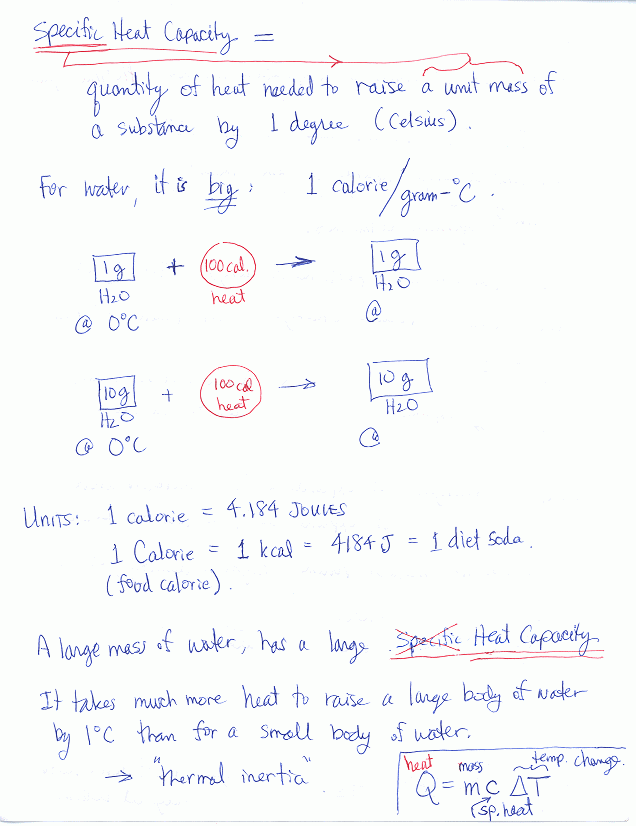 Specific Heat Capacity =
quantity of heat needed to raise a unit mass of
a substance by 1 degree (Celsius).
For water, it is big: 1 calorie/gram-°C.
1g + 100 cal. → 1g
H2O heat H2O
@ 0°C @
10g + 100 cal → 10 g
H2O heat H2O
@ 0°C @
UNITS: 1 calorie = 4.184 JOULES
1 Calorie = 1 kcal = 4184 J = 1 diet soda.
(food calorie).
A large mass of water, has a large Specific Heat Capacity
It takes much more heat to raise a large body of water
by 1°C than for a small body of water.
→ "thermal inertia"
heat mass temp. change.
Q = m c ΔT
sp. heat